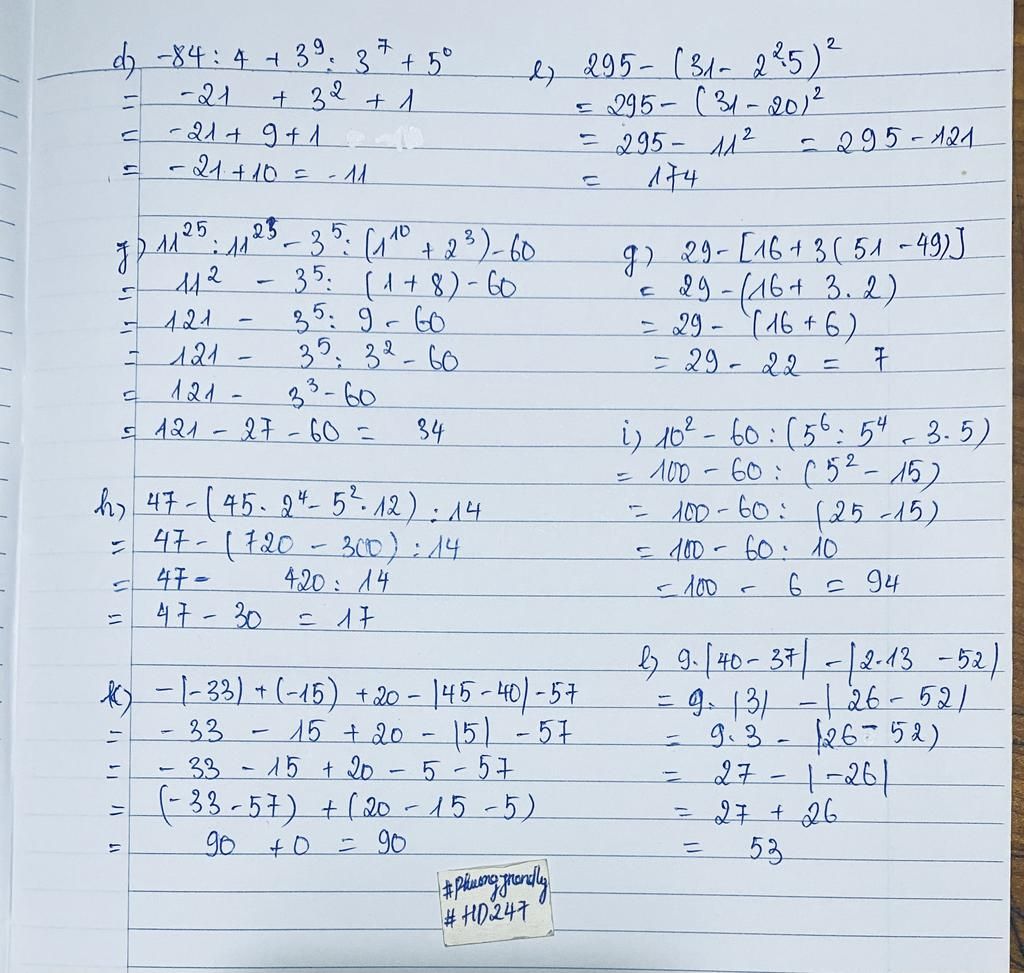 d) -84 : 4 + 3⁹ : 3⁷ + 5⁰
= -21 + 3² + 1
= -21 + 9 + 1
= -21 + 10 = -11
e) 295 - (31 - 2².5)²
= 295 - (31 - 20)²
= 295 - 11² = 295 - 121
= 174
f) 11²⁵ : 11²³ - 3⁵ : (1¹⁰ + 2³) - 60
= 11² - 3⁵ : (1 + 8) - 60
= 121 - 3⁵ : 9 - 60
= 121 - 3⁵ : 3² - 60
= 121 - 3³ - 60
= 121 - 27 - 60 = 34
g) 29 - [16 + 3(51 - 49)]
= 29 - (16 + 3.2)
= 29 - (16 + 6)
= 29 - 22 = 7
h) 47 - (45.2⁴ - 5².12) : 14
= 47 - (720 - 300) : 14
= 47 - 420 : 14
= 47 - 30 = 17
i) 10² - 60 : (5⁶ : 5⁴ - 3.5)
= 100 - 60 : (5² - 15)
= 100 - 60 : (25 - 15)
= 100 - 60 : 10
= 100 - 6 = 94
k) -|-33| + (-15) + 20 - |45 - 40| - 57
= -33 - 15 + 20 - |5| - 57
= -33 - 15 + 20 - 5 - 57
= (-33 - 57) + (20 - 15 - 5)
= 90 + 0 = 90
l) 9.|40 - 37| - |2.13 - 52|
= 9.|3| - |26 - 52|
= 9.3 - |26 - 52|
= 27 - |-26|
= 27 + 26
= 53
#HD247